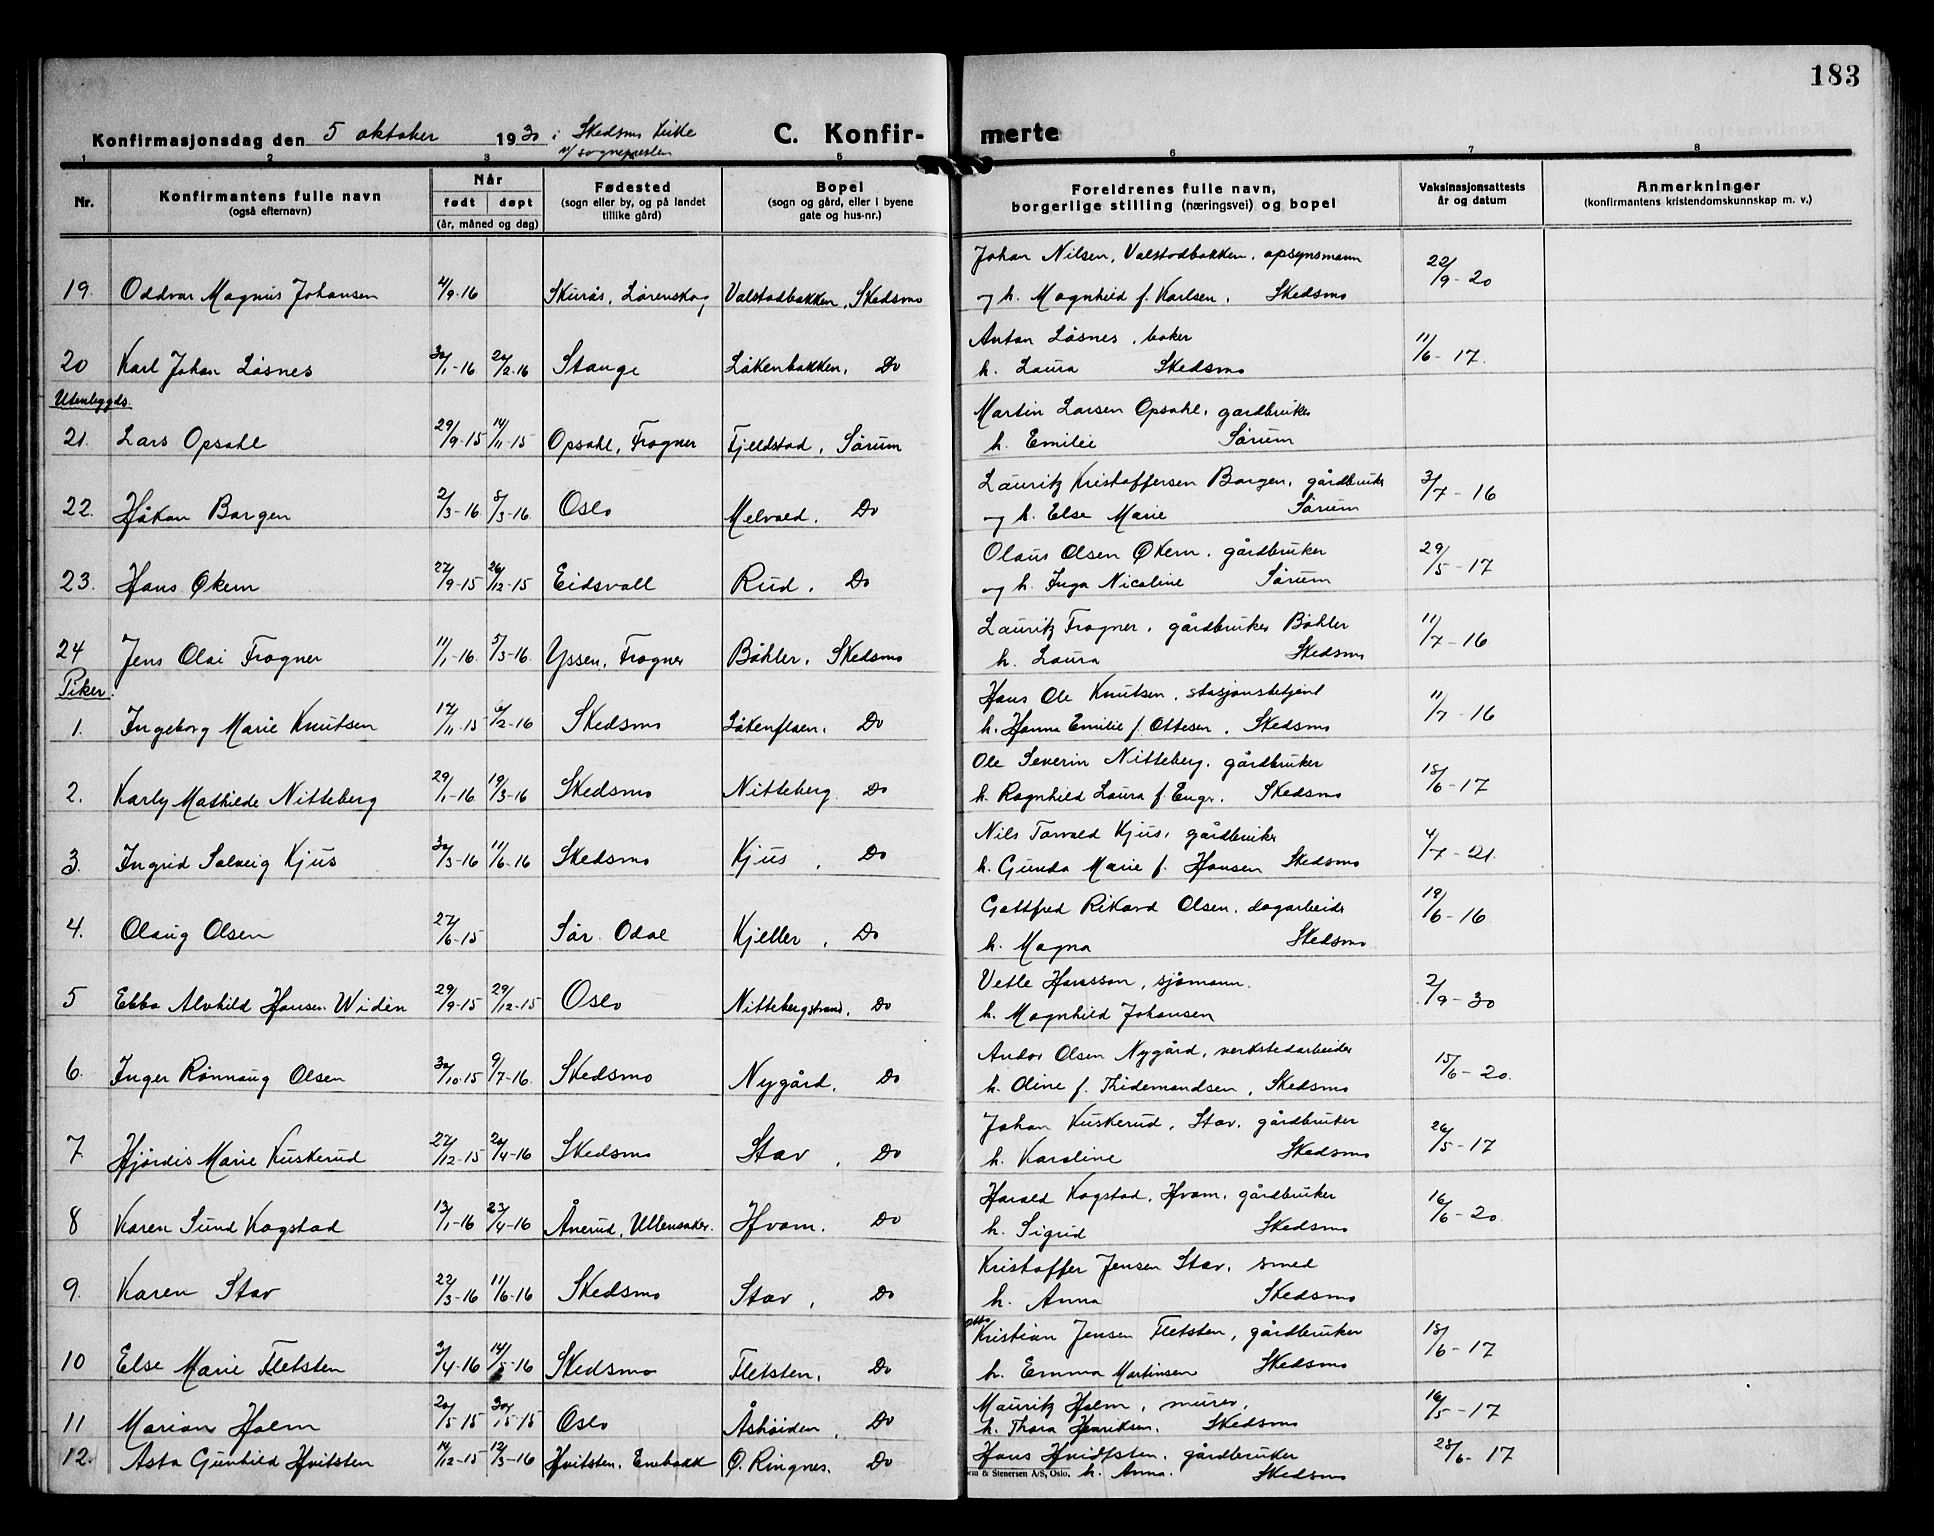 183
Konfirmasjonsdag den 5 oktober 1930 i Skedsmo kirke C. Konfir- merte
v/ sognepresten
1 2 3 4 5 6 7 8
Nr. Konfirmantens fulle navn (også efternavn) Når født døpt (år, måned og dag) Fødested (sogn eller by, og på landet tillike gård) Bopel (sogn og gård, eller i byene gate og hus-nr.) Foreldrenes fulle navn, borgerlige stilling (næringsvei) og bopel Vaksinasjonsattests år og datum Anmerkninger (konfirmantens kristendomskunnskap m. v.)
Johan Nilsen, Valstadbakken, opsynsmann
19. Oddvar Magnus Johansen 4/9-16 Skurås, Lørenskog Valstadbakken, Skedsmo og h. Magnhild f. Karlsen, Skedsmo 22/9-20
Anton Løsnes, baker
20 Karl Johan Løsnes 30/1-16 27/2-16 Stange Løkenbakken, Do h. Laura Skedsmo 11/6-17.
Utenbygds.
Martin Larsen Opsahl, gardbruker
21. Lars Opsahl 29/9-15 14/11-15 Opsahl, Frogner Fjeldstad, Sørum h. Emilie Sørum
Lauritz Kristoffersen Borgen, gårdbruker
22. Håkon Borgen 2/3-16 5/3-16 Oslo Melvold. Do og h. Else Marie Sørum 3/7-16
Olaus Olsen Økern, gårdbruker
23. Hans Økern 27/9-15 26/12-15 Eidsvoll Rud, Do og h. Inga Nicoline Sørum 29/5-17
Lauritz Frogner, gårdbruker Bøhler
24 Jens Olai Frogner 11/1-16 5/3-16. Yssen, Frogner Bøhler, Skedsmo h. Laura Skedsmo 11/7-16
Piker.
Hans Ole Knutsen, stasjonsbetjent
1. Ingeborg Marie Knutsen 17/11-15 6/2-16 Skedsmo Løkenflaen, Do h. Hanna Emilie f. Ottesen, Skedsmo 11/7-16
Ole Severin Nitteberg, gårdbruker
2. Karly Mathilde Nitteberg 29/1-16 19/3-16 Skedsmo Nitteberg Do h. Ragnhild Laura f. Enger, Skedsmo 18/6-17
Nils Torvald Kjus, gårdbruker
3. Ingrid Solveig Kjus 30/3-16 11/6-16 Skedsmo Kjus, Do h. Gunda Marie f. Hansen Skedsmo 4/7-21.
Gottfred Rikard Olsen, dagarbeider
4. Olaug Olsen 27/6-15 Sør Odal Kjeller, Do h. Magna Skedsmo 19/6-16
Vetle Hansson, sjømann.
5 Ebba Alvhild Hansen Widèn 29/9-15 29/12-15 Oslo Nittebergstrand, Do h. Magnhild Johansen 2/9-30
Andor Olsen Nygård, verkstedarbeider
6. Inger Rønnaug Olsen 30/10-15 9/7-16. Skedsmo Nygård, Do h. Oline f. Thidemandsen, Skedsmo 15/6-20.
Johan Kuskerud, Stav, gårdbruker
7. Hjørdis Marie Kuskerud 27/12-15 24/4-16 Skedsmo Stav, Do h. Karoline Skedsmo 26/5-17
Harald Kogstad, Hvam, gårdbruker
8 Karen Sund Kogstad 13/1-16 23/4-16 Ånerud, Ullensaker. Hvam. Do h. Sigrid Skedsmo 16/6-20
Kristoffer Jensen Stav, smed
9. Karen Stav 22/3-16 11/6-16 Skedsmo Stav, Do h. Anna Skedsmo
Kristian Jensen Fletsten, gårdbruker
10 Else Marie Fletsten 3/4-16 14/5-16 Skedsmo Fletsten, Do h. Emma Martinsen Skedsmo 18/6-17
Mauritz Holm, murer,
11 Marion Holm 20/5-15 Oslo Åshøiden, Do h. Thora Henriksen. Skedsmo 16/5-17
Hans Hvidtsten, gårdbruker
12. Asta Gunhild Hvitsten 14/12-15 12/3-16 Hvitsten, Enebakk Ø. Ringnes. Do h. Anna. Skedsmo 28/6-17
& Stenersen A/S, Oslo.